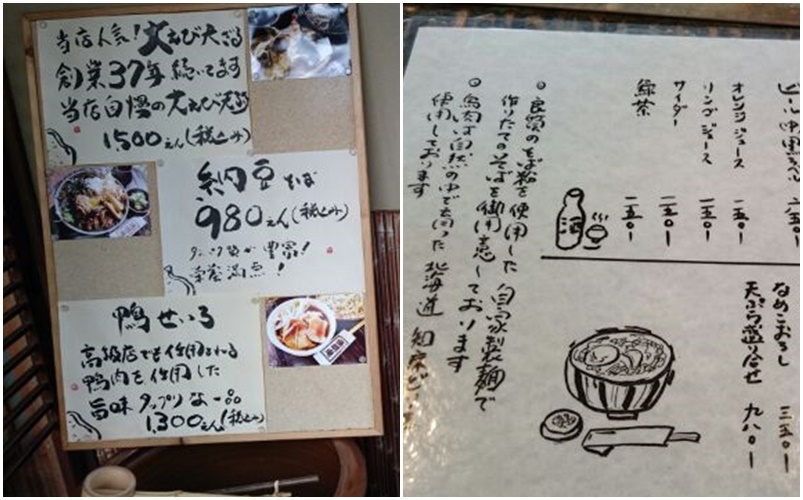 当店人気!大えび天ざる
創業37年続いてます
当店自慢の大えび天ざる
1500えん(税込み)
納豆そば
980えん(税込み)
タンパク質が豊富!
栄養満点!
鴨せいろ
高級店でも使用される
鴨肉を使用した
旨味タップリな一品
1,300えん(税込み)
オレンジジュース 二五〇ー
リンゴジュース 二五〇ー
サイダー 二五〇ー
緑茶 二五〇ー
酒
なめこおろし 三五〇ー
天ぷら盛り合せ 九八〇ー
◎良質のそば粉を使用した自家製麺で
作りたてのそばを御用意しております
◎鳥肉は自然の中で育った北海道知床ど
使用しております